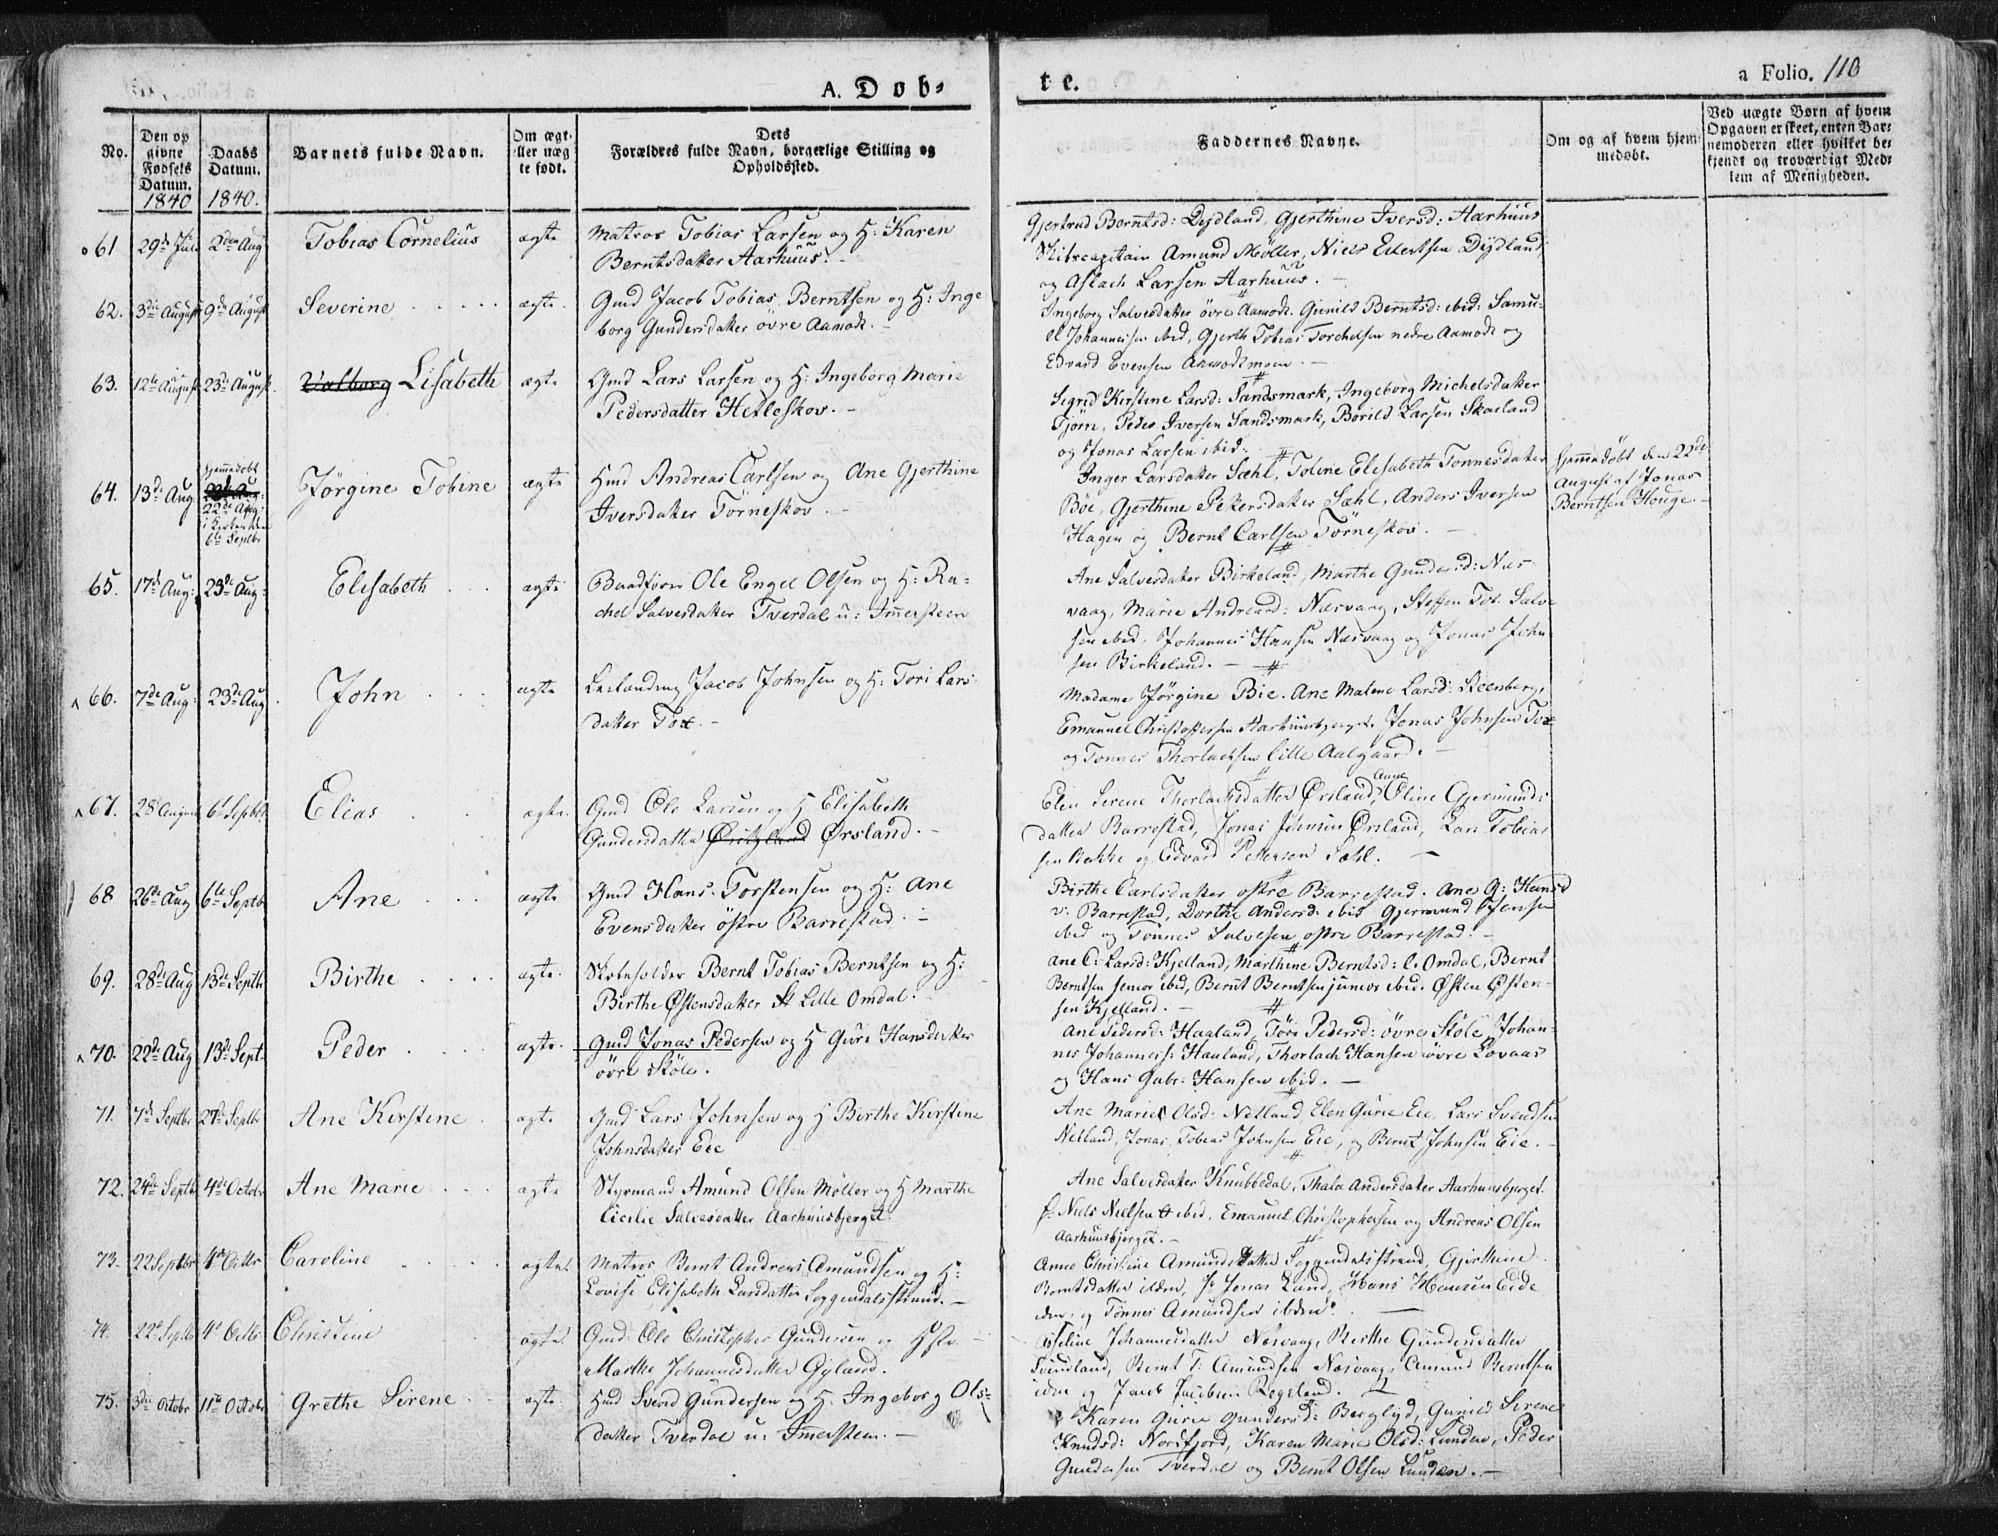 A. Døb-
te.
a Folio. 110
No.
Den opgivne Fødsels Datum. 1840
Daabs Datum. 1840.
Barnets fulde Navn.
Om ægte eller uægte født.
Dets Forældres fulde Navn, borgerlige Stilling og Opholdssted.
Faddernes Navne.
Om og af hvem hjemmedøbt.
Ved uægte Børn af hvem
Opgaven er skeet, enten Bar-
nemoderen eller hvilket be-
kjendt og troværdigt Med-
lem af Menigheden.
61 29de Juli 2den Aug Tobias Cornelius ægte Matros Tobias Larsen og H: Karen
Berntsdatter Aarhuus.
Gjertrud Berntsd: Dydland, Gjerthine Iversd: Aarhuus
Skibscapitain Amund Møller, Niels Eilertsen Dydland,
og Aslach Larsen Aarhuus.
62. 3die August 9de August Severine ægte. Gmd Jacob Tobias Berntsen og H: Inge
borg Gundersdatter övre Aamodt.
Ingeborg Salvesdatter övre Aamodt. Gunild Berntsd: ibid: Samu-
el Johannesen ibid, Gjerth Tobias Torchelsen nedre Aamodt og
Edvard Evensen Aamodtmoen.
63. 12te August 23de August Valborg Lisabeth ægte Gmd Lars Larsen og H: Ingeborg Marie
Pedersdatter Hetleskov.
Sigrid Kirstine Larsd: Sandsmark, Ingeborg Michelsdatter
Tjørn, Peder Iversen Sandsmark, Borild Larsen Skaeland
og Jonas Larsen ibid:
64. 13de Aug hjemmedøbt 22de Aug: i Kirken den 6te Septbr Jørgine Tobine ægte Hmd Andreas Carlsen og Ane Gjerthine
Iversdatter Törneskov.
Inger Larsdatter Sæhl, Toline Elisabeth Tonnesdatter
Böe, Gjerthine Pettersdatter Sæhl, Anders Iversen
Hagen og Bernt Carlsen Törneskov.
Hjemmedøbt den 22de
August af Jonas
Berntsen Houge.
65. 17de Aug: 23de Aug: Elisabeth ægte Baadfører Ole Engel Olsen og H: Ra-
chel Salvesdatter Tverdal u: Immersteen
Ane Salvesdatter Birkeland, Marthe Gundersd: Næs-
vaag, Marie Andreasd: Næsvaag, Steffen Tob. Salve-
sen ibid, Johannes Hansen Næsvaag og Jonas John
sen Birkeland.
66. 7de Aug: 23de Aug John ægte Leilænding Jacob Johnsen og H: Tori Lars-
datter Tox.
Madame Jörgine Bie. Ane Malene Larsd: Steenberg,
Emanuel Christoffersen Aarhuusbjerget Jonas Johnsen Tox
og Tonnes Thorlachsen Lille Aalgaard.
67. 28de August 6te Septbr Elias ægte Gmd Ole Larsen og H Elisabeth
Gundersdatter Ørsland.
Elen Serene Thorlachsdatter Ørsland, Anne Oline Gjermunds
datter Barrestad, Jonas Jensen Ørsland, Lars Tobias
sen Bakke og Edvard Pettersen Sæhl.
68 26de Aug 6te Septbr Ane ægte Gmd Hans Torstensen og H: Ane
Evensdatter östre Barrestad.
Birthe Carlsdatter östre Barrestad. Ane G: Hansd
v: Barrestad, Dorthe Andersd: ibid Gjermund Jensen
ibid og Tönnes Salvesen östre Barrestad.
69. 28de Aug 13de Septbr Birthe ægte. Skoleholder Bernt Tobias Berntsen og H:
Birthe Østensdatter Lille Omdal.
Ane C: Larsd: Kjelland, Marthine Berntsd: l. Omdal, Bernt
Berntsen senior ibid, Bernt Berntsen junior ibid. Østen Østen-
sen Kjelland.
70. 22de Aug 13de Sept. Peder ægte. Gmd Jonas Pedersen og H Guri Hansdatter
övre Stöle.
Ane Pedersd: Haaland, Töri Pedersd: övre Stöle, Johan-
nes Johanness: Hauland, Thorlach Hansen övre Lovaas
og Hans Gabr: Hansen ibid.
71. 7de Septbr 27de Septbr Ane Kirstine ægte Gmd Lars Johnsen og H Birthe Kirstine
Johnsdatter Eie
Ane Marie Olsd: Netland, Elen Gurie Eie, Lars Svendsen
Netland, Jonas Tobias Johnsen Eie, og Bernt Johnsen Eie.
72. 24de Septbr 4de Octobr Ane Marie ægte Styrmand Amund Olsen Møller og H. Marthe
Cicilie Salvesdatter Aarhuusbjerget.
Ane Salvesdatter Knubbedal, Thala Andersdatter Aarhuusbjerget.
Niels Nielsen ibid, Emanuel Christophersen og Andreas Olsen
Aarhuusbjerget.
73. 22 Septbr 4de Octbr Caroline ægte Matros Bernt Andreas Amundsen og H:
Lovise Elisabeth Larsdatter Soggendalsstrand.
Anne Christine Amundsdatter Soggendalsstrand, Gjerthine
Berntsdatter ibidem, Jonas Lund, Hans Hansen Eide
idem, og Tönnes Amundsen ibidem.
74. 22de Septbr 4de Octbr Christine ægte Gmd. Ole Christopher Gundersen og Hstr.
Marthe Johannesdatter Gyland.
Aseline Johannesdatter Næsvaag, Berthe Gundersdatter
Svindland, Bernt T: Amundsen Næsvaag, Amund Berntsen
idem og Jacob Jacobsen Regeland.
75. 3die Octobr 11te Octobr Grethe Sirene ægte Hmd Svend Gundersen og H. Ingeborg Ols-
datter Tverdal u: Immersteen.
Karen Gurie Gundersd: Berglyd, Gunild Serene
Knudsd: Nordfjord, Karen Marie Olsd: Lunden, Peder
Gundersen Tverdal og Bernt Olsen Lunden.